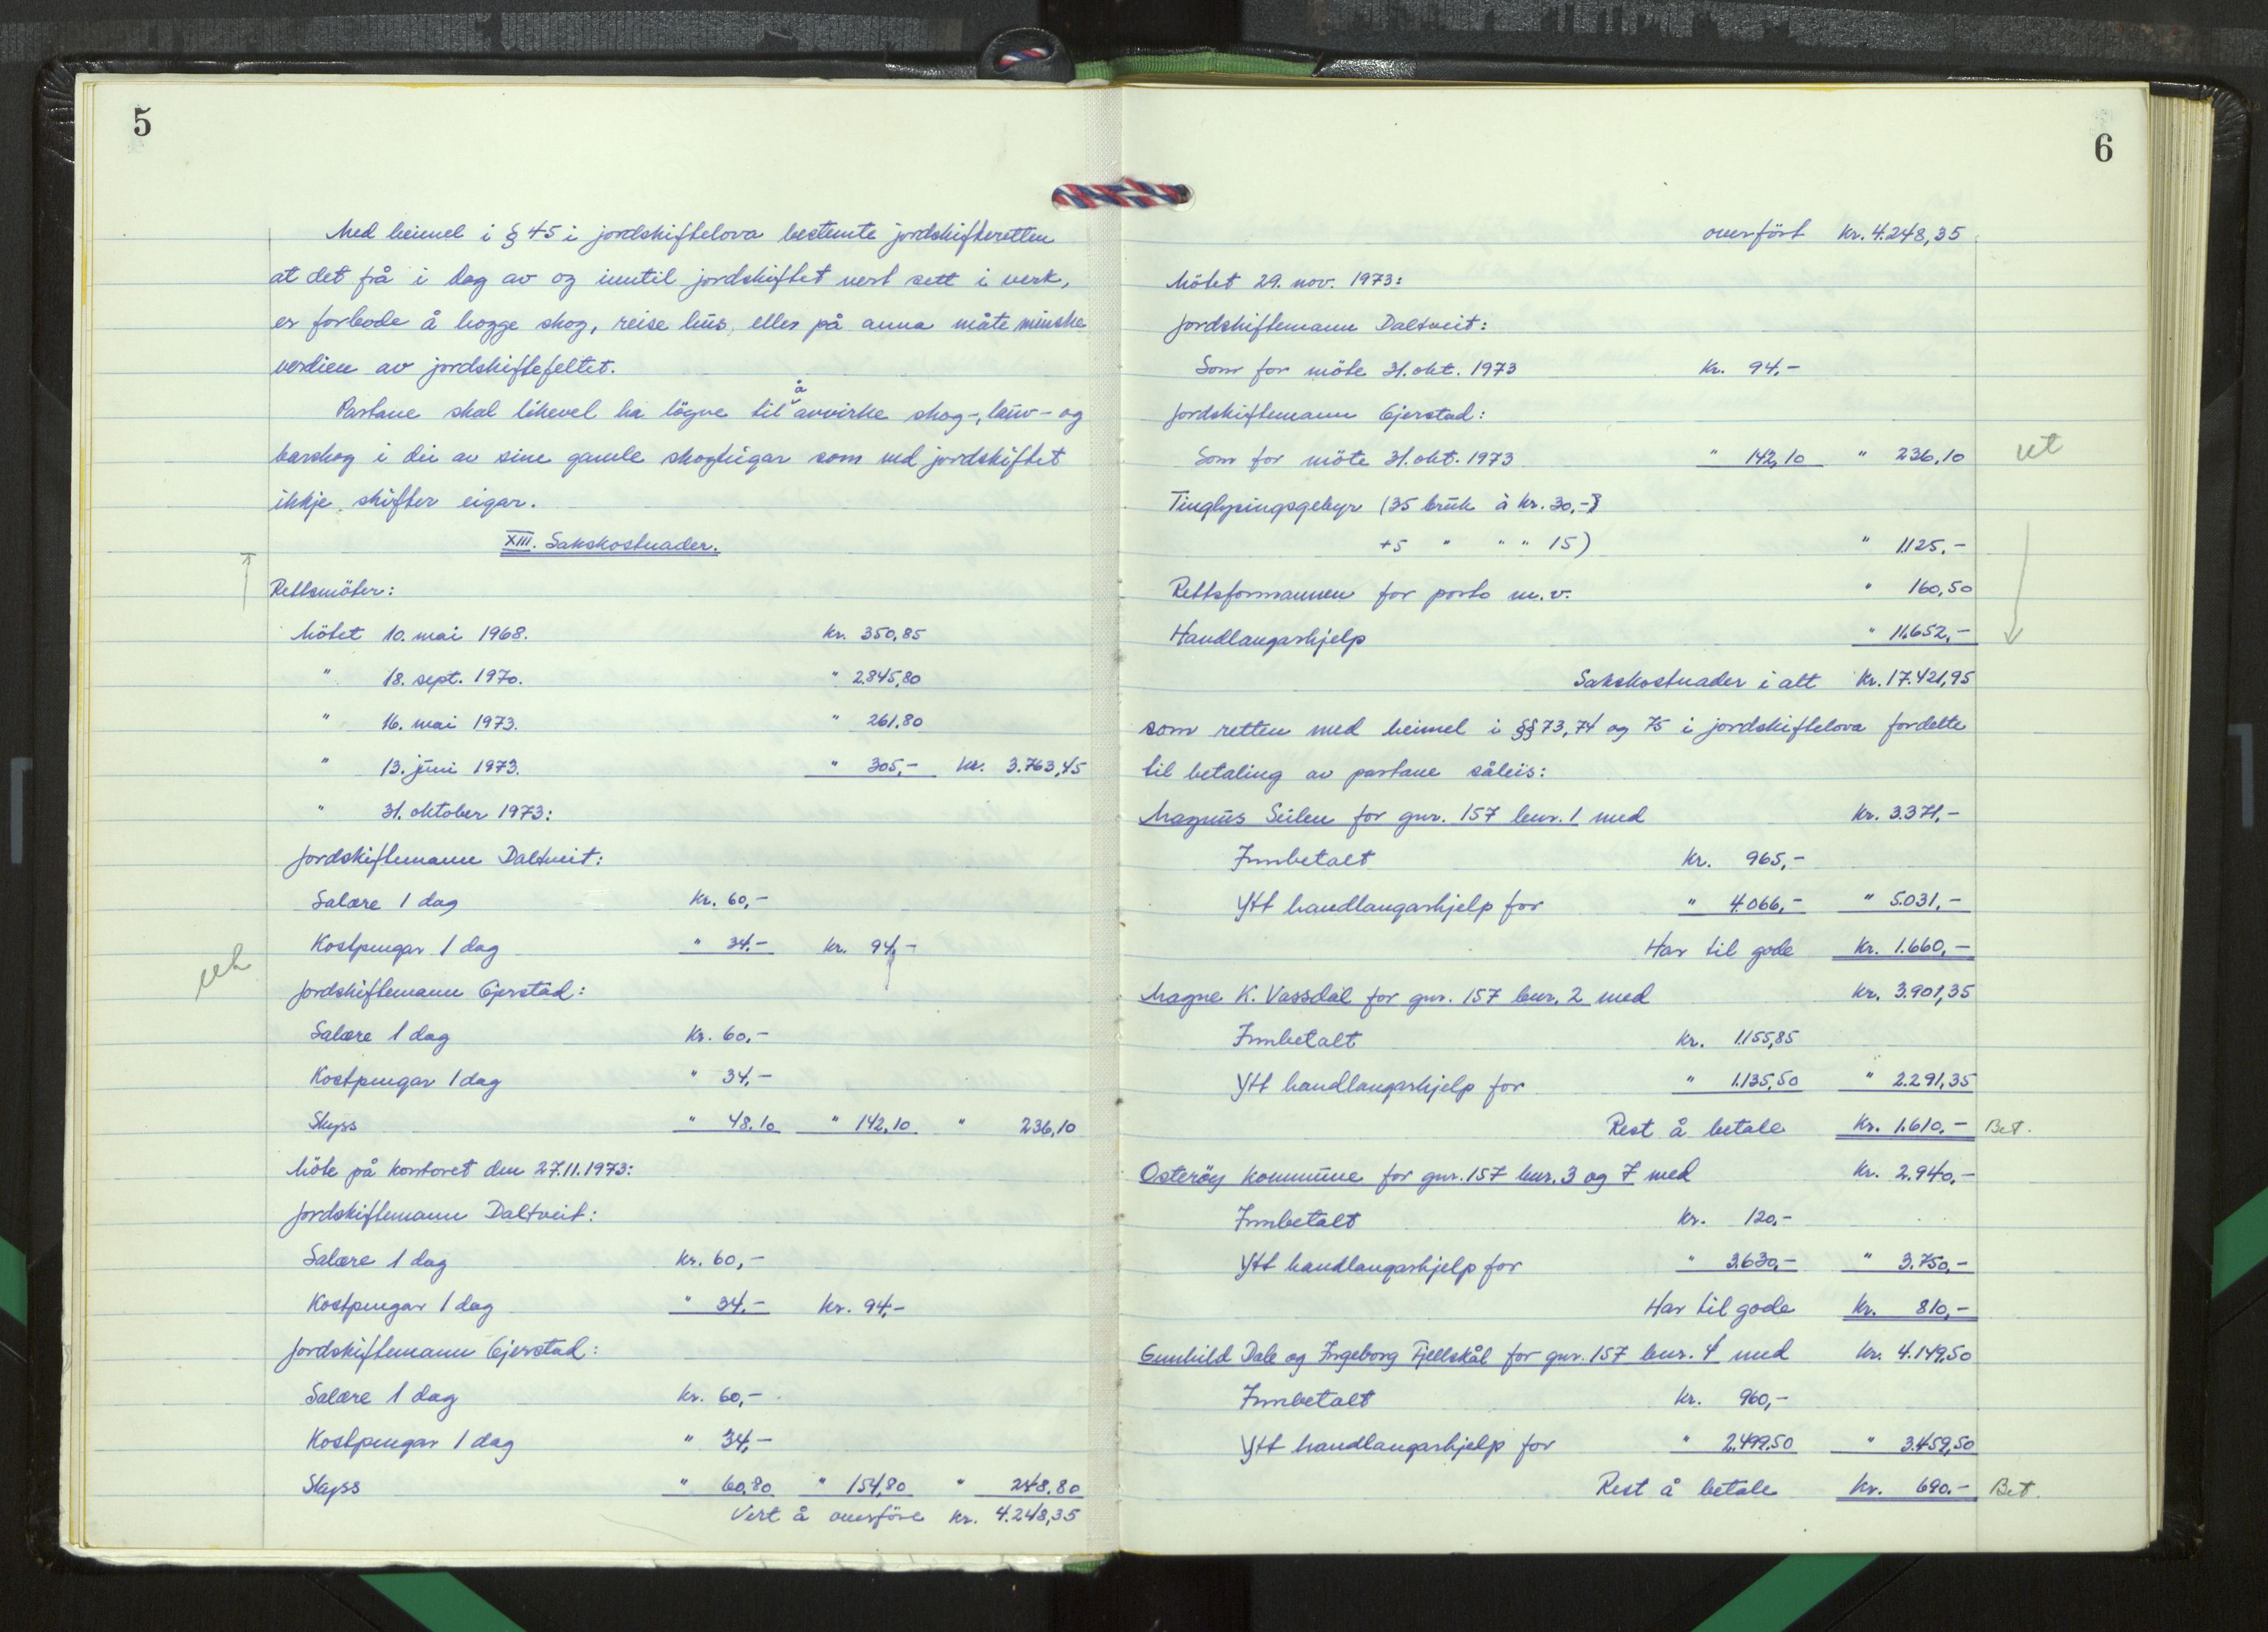 5
Med heimel i § 45 i jordskiftelova bestemte jordskifteretten
at det frå i dag av og inntil jordskiftet vert sett i verk,
er forbode å hogge skog, reise hus, eller på anna måte minske
verdien av jordskiftefeltet.
Partane skal likevel ha løgve til å avvirke skog-, lauv- og
barskog i dei av sine gamle skogteigar som ved jordskiftet
ikkje skifter eigar.
XIII. Sakskostnader.
Rettsmöter:
Mötet 10. mai 1968. kr. 350,85
" 18. sept. 1970. " 2.845,80
" 16. mai 1973. " 261,80
" 13. juni 1973. " 305,- kr. 3.763,45
" 31. oktober 1973:
Jordskiftemann Daltveit:
Salære 1 dag kr. 60,-
Kostpengar 1 dag " 34.- kr. 94,-
Jordskiftemann Gjerstad:
Salære 1 dag kr. 60,-
Kostpengar 1 dag " 34,-
Skyss " 48.10 " 142,10 " 236,10
Möte på kontoret den 27.11.1973:
Jordskiftemann Daltveit:
Salære 1 dag kr. 60,-
Kostpengar 1 dag " 34.- kr. 94,-
Jordskiftemann Gjerstad:
Salære 1 dag kr. 60,-
Kostpengar 1 dag " 34,-
Skyss " 60,80 " 154,80 " 248.80
Vert å overföre kr. 4.248,35
6
overfört kr. 4.248,35
Mötet 29. nov. 1973:
Jordskiftemann Daltveit:
Som for möte 31. okt. 1973 kr. 94.-
Jordskiftemann Gjerstad:
Som for möte 31. okt. 1973 " 142,10 " 236,10
ut
Tinglysingsgebyr (35 bruk à kr. 30,-)
+5 " " " 15) " 1.125.-
Rettsformannen for porto m.v. " 160,50
Handlangarhjelp " 11.652,-
Sakskostnader i alt kr. 17.421,95
som retten med heimel i §§ 73, 74 og 75 i jordskiftelova fordelte
til betaling av partane såleis:
Magnus Seilen for gnr. 157 bnr. 1 med kr. 3.371,-
Innbetalt kr. 965,-
Ytt handlangarhjelp for " 4.066,- " 5.031.-
Har til gode kr. 1.660,-
Magne K. Vassdal for gnr. 157 bnr. 2 med kr. 3.901,35
Innbetalt kr. 1.155,85
Ytt handlangarhjelp for " 1.135,50 " 2.291,35
Rest å betale kr. 1.610.- Bet.
Osteröy kommune for gnr. 157 bnr. 3 og 7 med kr. 2.940.-
Innbetalt kr. 120.-
Ytt handlangarhjelp for " 3.630,- " 3.750,-
Har til gode kr. 810,-
Gunhild Dale og Ingeborg Fjellskål for gnr. 157 bnr. 4 med kr. 4.149,50
Innbetalt kr. 960,-
Ytt handlangarhjelp for " 2.499.50 " 3.459,50
Rest å betale kr. 690.- Bet.